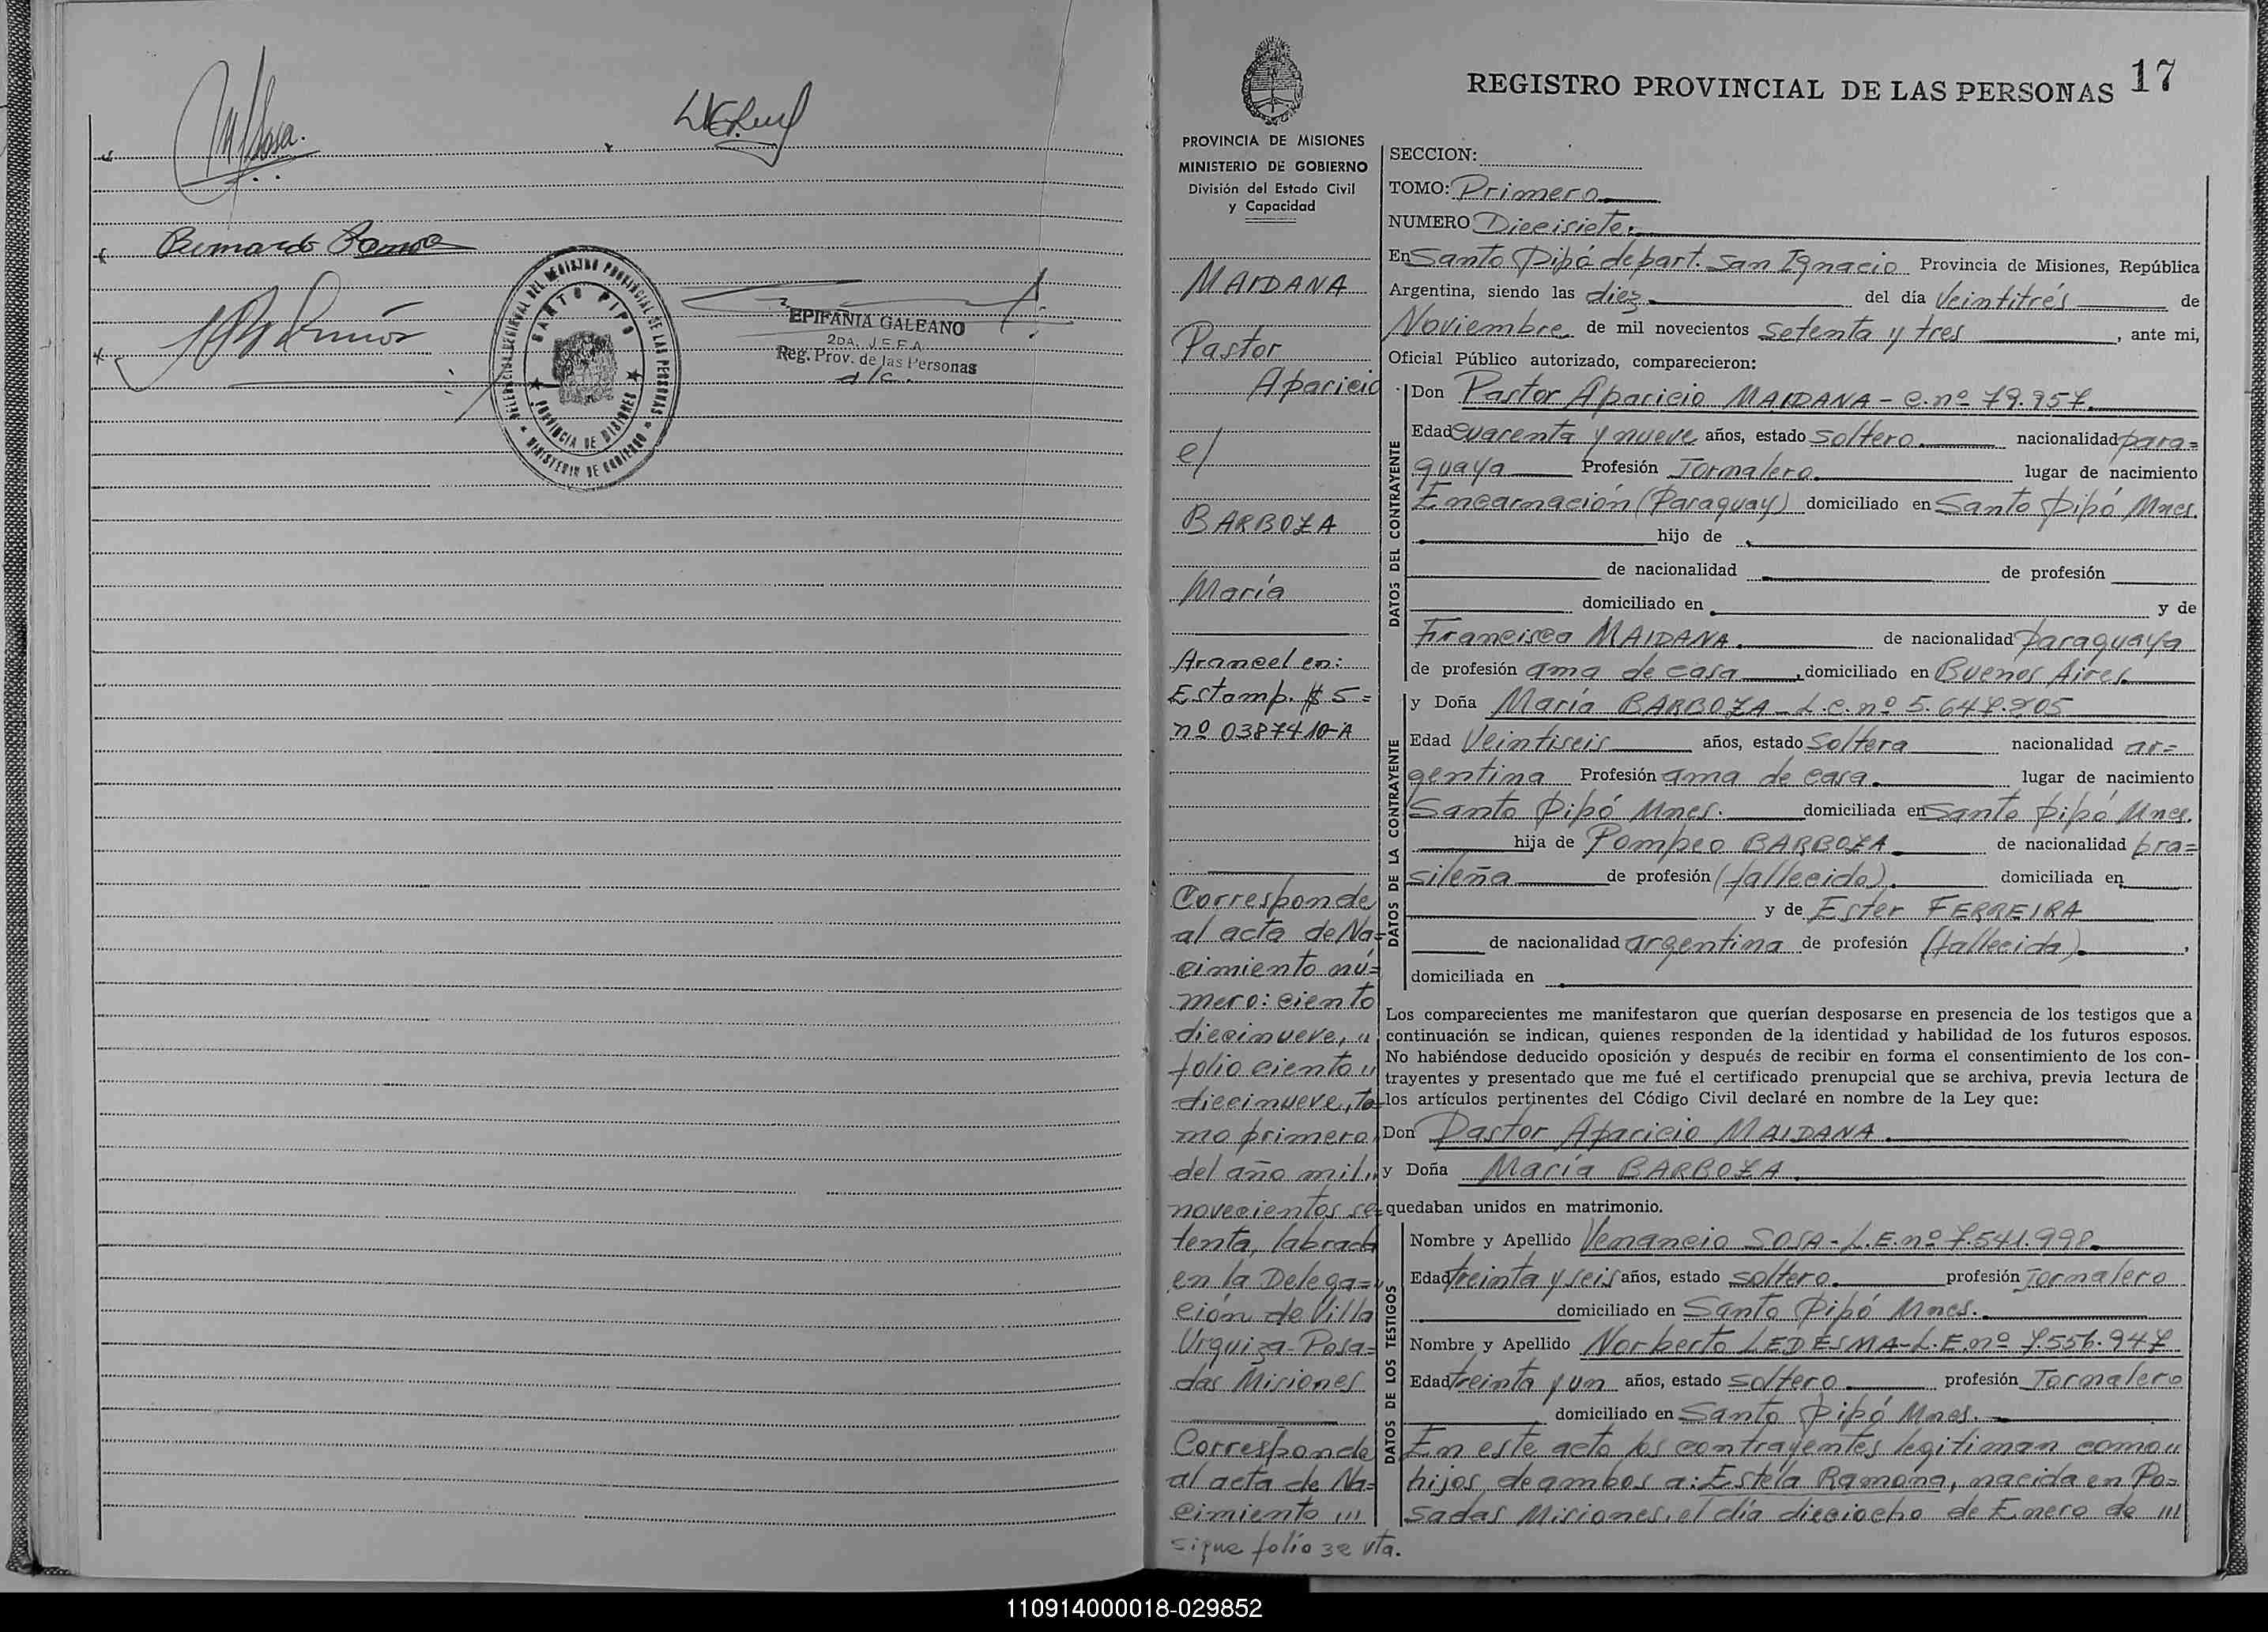 M Sosa.
Bernardo Ramos
DELEGACION REGIONAL DEL REGISTRO PROVINCIAL DE LAS PERSONAS
SANTO PIPO
PROVINCIA DE MISIONES
MINISTERIO DE GOBIERNO
EPIFANIA GALEANO
2DA. JEFA
Reg. Prov. de las Personas
a/c.
REGISTRO PROVINCIAL DE LAS PERSONAS 17
PROVINCIA DE MISIONES
MINISTERIO DE GOBIERNO
División del Estado Civil
y Capacidad
MAIDANA
Pastor
Aparicio
c/
BARBOZA
María
Arancel en:
Estamp. $ 5=
nº 0387410-A
Corresponde
al acta de Na=
cimiento nú=
mero: ciento
diecinueve, "
folio ciento "
diecinueve, to=
mo primero,
del año mil "
novecientos se=
tenta, labrada
en la Delega="
ción de Villa
Urquiza-Posa=
das Misiones
Corresponde
al acta de Na=
cimiento '''
sigue folio 32 vta.
SECCION:
TOMO: Primero
NUMERO Diecisiete.
En Santo Pipó depart. San Ignacio Provincia de Misiones, República
Argentina, siendo las diez del día Veintitrés de
Noviembre de mil novecientos setenta y tres, ante mi,
Oficial Público autorizado, comparecieron:
DATOS DEL CONTRAYENTE
Don Pastor Aparicio MAIDANA - C. nº 79.957.
Edad Cuarenta y nueve años, estado soltero. nacionalidad para=
guaya Profesión Jornalero. lugar de nacimiento
Encarnación (Paraguay) domiciliado en Santo Pipó Mnes.
hijo de
de nacionalidad de profesión
domiciliado en y de
Francisca MAIDANA. de nacionalidad paraguaya
de profesión ama de casa, domiciliado en Buenos Aires.
DATOS DE LA CONTRAYENTE
y Doña María BARBOZA - L.C. nº 5.647.205
Edad Veintiseis años, estado Soltera nacionalidad ar=
gentina Profesión ama de casa. lugar de nacimiento
Santo Pipó Mnes. domiciliada en Santo Pipó Mnes.
hija de Pompeo BARBOZA. de nacionalidad bra=
sileña de profesión (fallecido). domiciliada en
y de Ester FERREIRA
de nacionalidad argentina de profesión (fallecida).,
domiciliada en
Los comparecientes me manifestaron que querían desposarse en presencia de los testigos que a
continuación se indican, quienes responden de la identidad y habilidad de los futuros esposos.
No habiéndose deducido oposición y después de recibir en forma el consentimiento de los con-
trayentes y presentado que me fué el certificado prenupcial que se archiva, previa lectura de
los artículos pertinentes del Código Civil declaré en nombre de la Ley que:
Don Pastor Aparicio MAIDANA.
y Doña María BARBOZA.
quedaban unidos en matrimonio.
DATOS DE LOS TESTIGOS
Nombre y Apellido Venancio SOSA - L.E. nº 7.541.998.
Edad treinta y seis años, estado soltero. profesión Jornalero
domiciliado en Santo Pipó Mnes.
Nombre y Apellido Norberto LEDESMA - L.E. nº 7.556.947
Edad treinta y un años, estado soltero profesión Jornalero
domiciliado en Santo Pipó Mnes.
En este acto los contrayentes legitiman como "
hijos de ambos a: Estela Ramona, nacida en Po=
sadas Misiones, el día dieciocho de Enero de '''
110914000018-029852